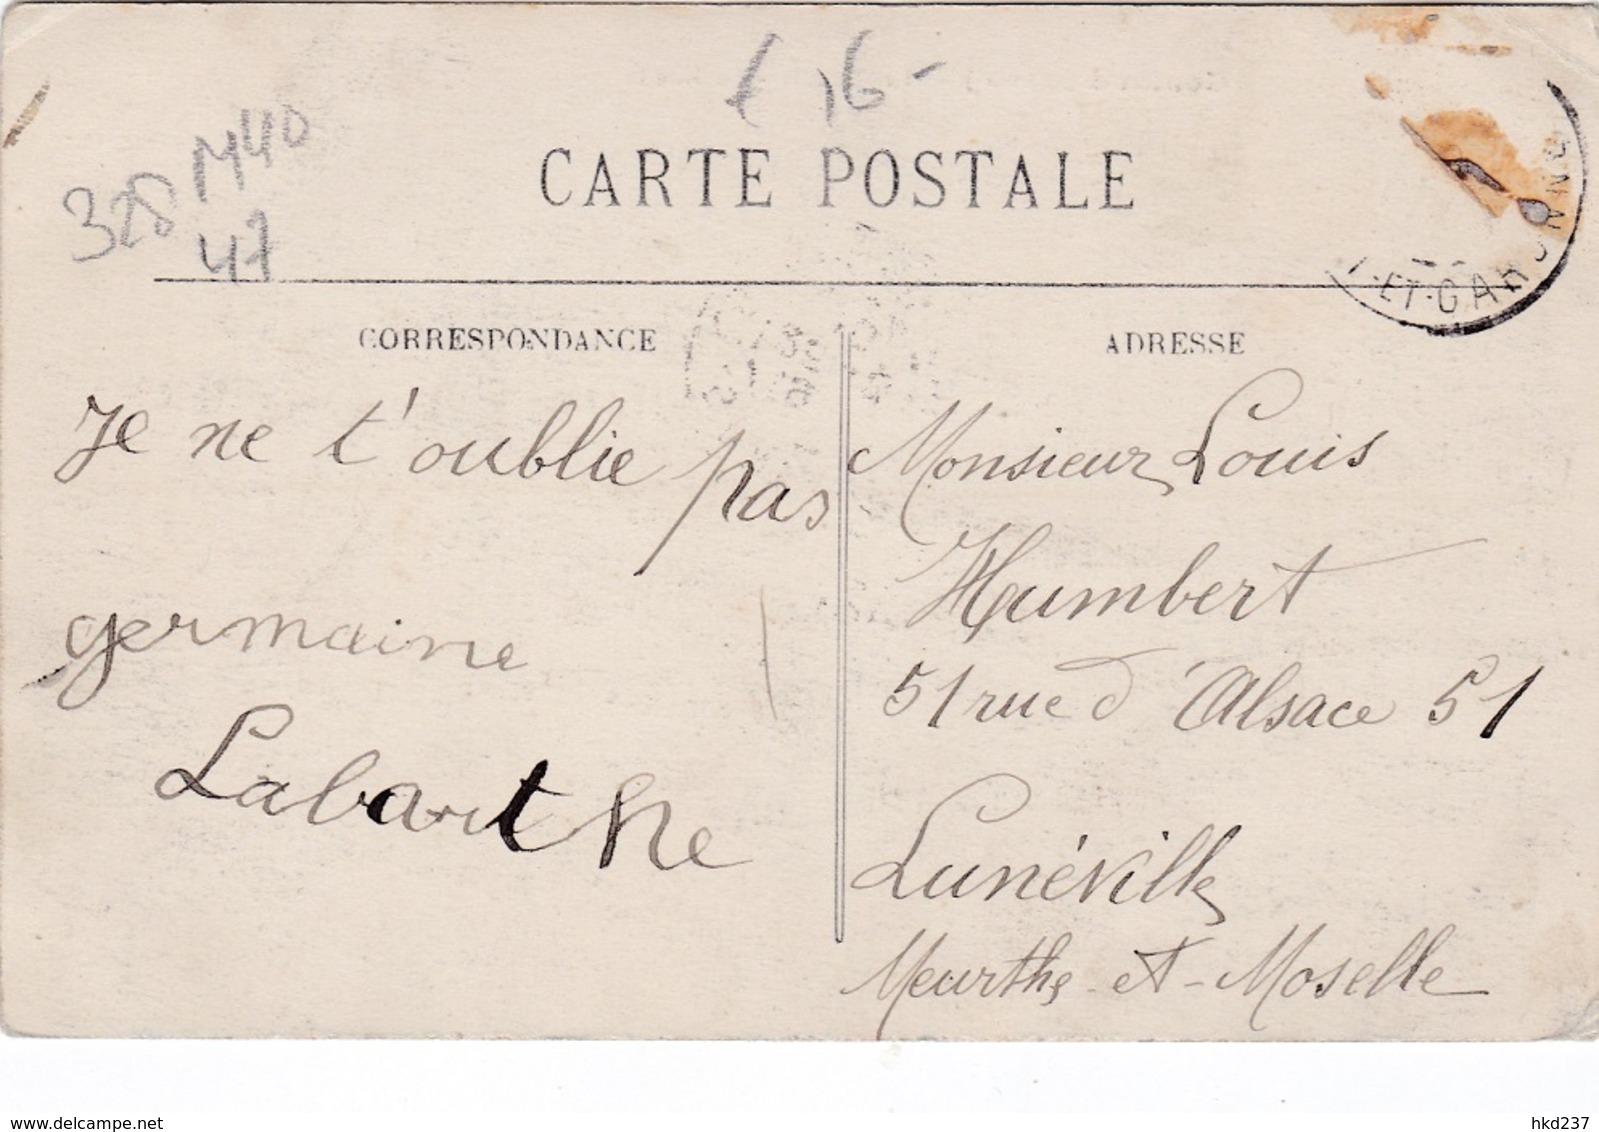 € 16-
M40
328
47
CARTE POSTALE
T-ET-GARONNE
CORRESPONDANCE
Je ne t'oublie pas
germaine
Labarthe
ADRESSE
Monsieur Louis
Humbert
51 rue d'Alsace 51
Lunéville
Meurthe-et-Moselle
delcampe.net
hkd237